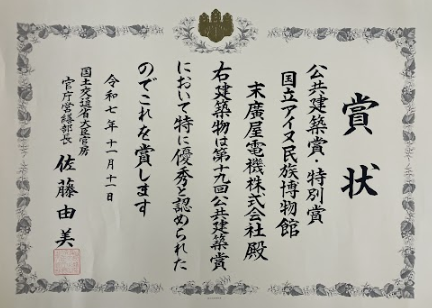 賞状
公共建築賞・特別賞
国立アイヌ民族博物館
末廣屋電機株式会社 殿
右建築物は第十九回公共建築賞
において特に優秀と認められた
のでこれを賞します
令和七年十一月十一日
国土交通省大臣官房
官庁営繕部長 佐藤由美